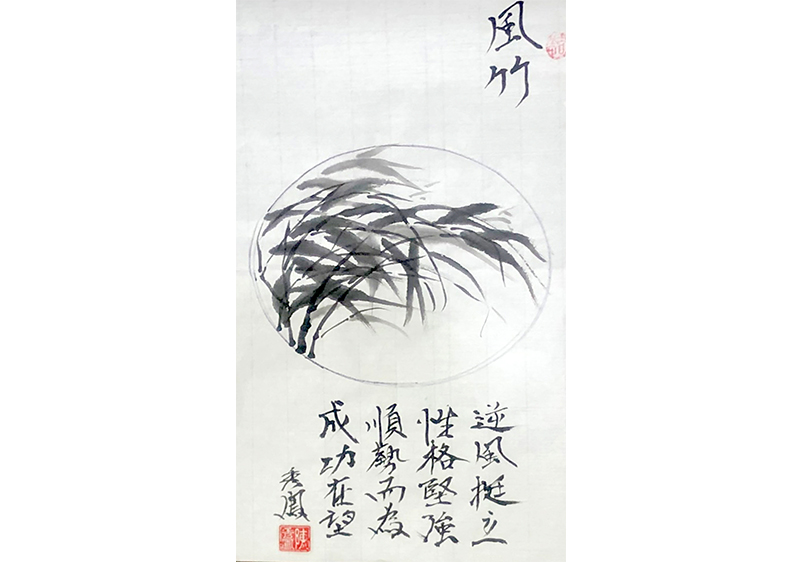 風竹
逆風挺立
性格堅強
順勢而為
成功在望
秀鳳